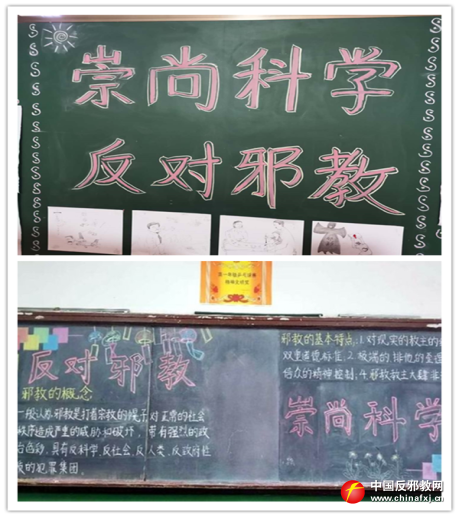 崇尚科学
反对邪教
反对邪教
邪教的概念
一般认为邪教是打着宗教的幌子对正常的社会
秩序造成严重的威胁和破坏,带有强烈的政
治色彩,具有反科学、反社会、反人类、反政府性
质的犯罪集团。
邪教的基本特点:1.对现实的教主的
双重道德标准。2.极端的排他的
信众的精神控制。4.邪教教主大肆
崇尚科学
中国反邪教网
www.chinafxj.cn